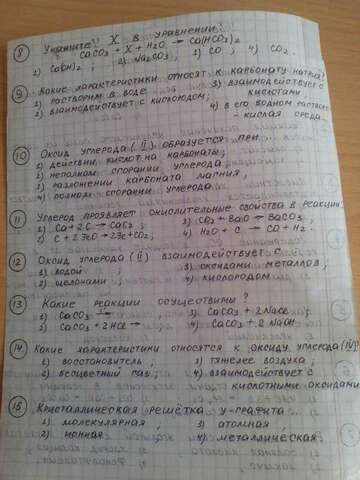 8 Укажите X в уравнении:
CaCO₃ + X + H₂O → Ca(HCO₃)₂
1) Ca(OH)₂ ; 2) Na₂CO₃ ; 3) CO , 4) CO₂ .
9 Какие характеристики относят к карбонату натрия?
1) растворим в воде 3) взаимодействует с
2) взаимодействует с кислородом; кислотами
4) в его водном растворе
- кислая среда.
10 Оксид углерода (II) образуется при ...
1) действии кислот на карбонаты;
2) неполном сгорании углерода
3) разложении карбоната магния,
4) полном сгорании углерода.
11 Углерод проявляет окислительные свойства в реакции
1) Ca + 2C → CaC₂ ; 3) CO₂ + BaO → BaCO₃ ;
2) C + 2FeO → 2Fe + CO₂ ; 4) H₂O + C → CO + H₂ .
12 Оксид углерода (II) взаимодействует с
1) водой ; 3) оксидами металлов,
2) щелочами ; 4) кислородом
13 Какие реакции осуществимы?
1) CaCO₃ → ; 3) CaCO₃ + 2NaCl
2) CaCO₃ + 2HCl → 4) CaCO₃ + 2NaOH
14 Какие характеристики относятся к оксиду углерода (IV)?
1) восстановитель , 3) тяжелее воздуха ,
2) бесцветный газ 4) взаимодействует с
кислотными оксидами
15 Кристаллическая решётка у графита ..
1) молекулярная , 3) атомная ,
2) ионная 4) металлическая.